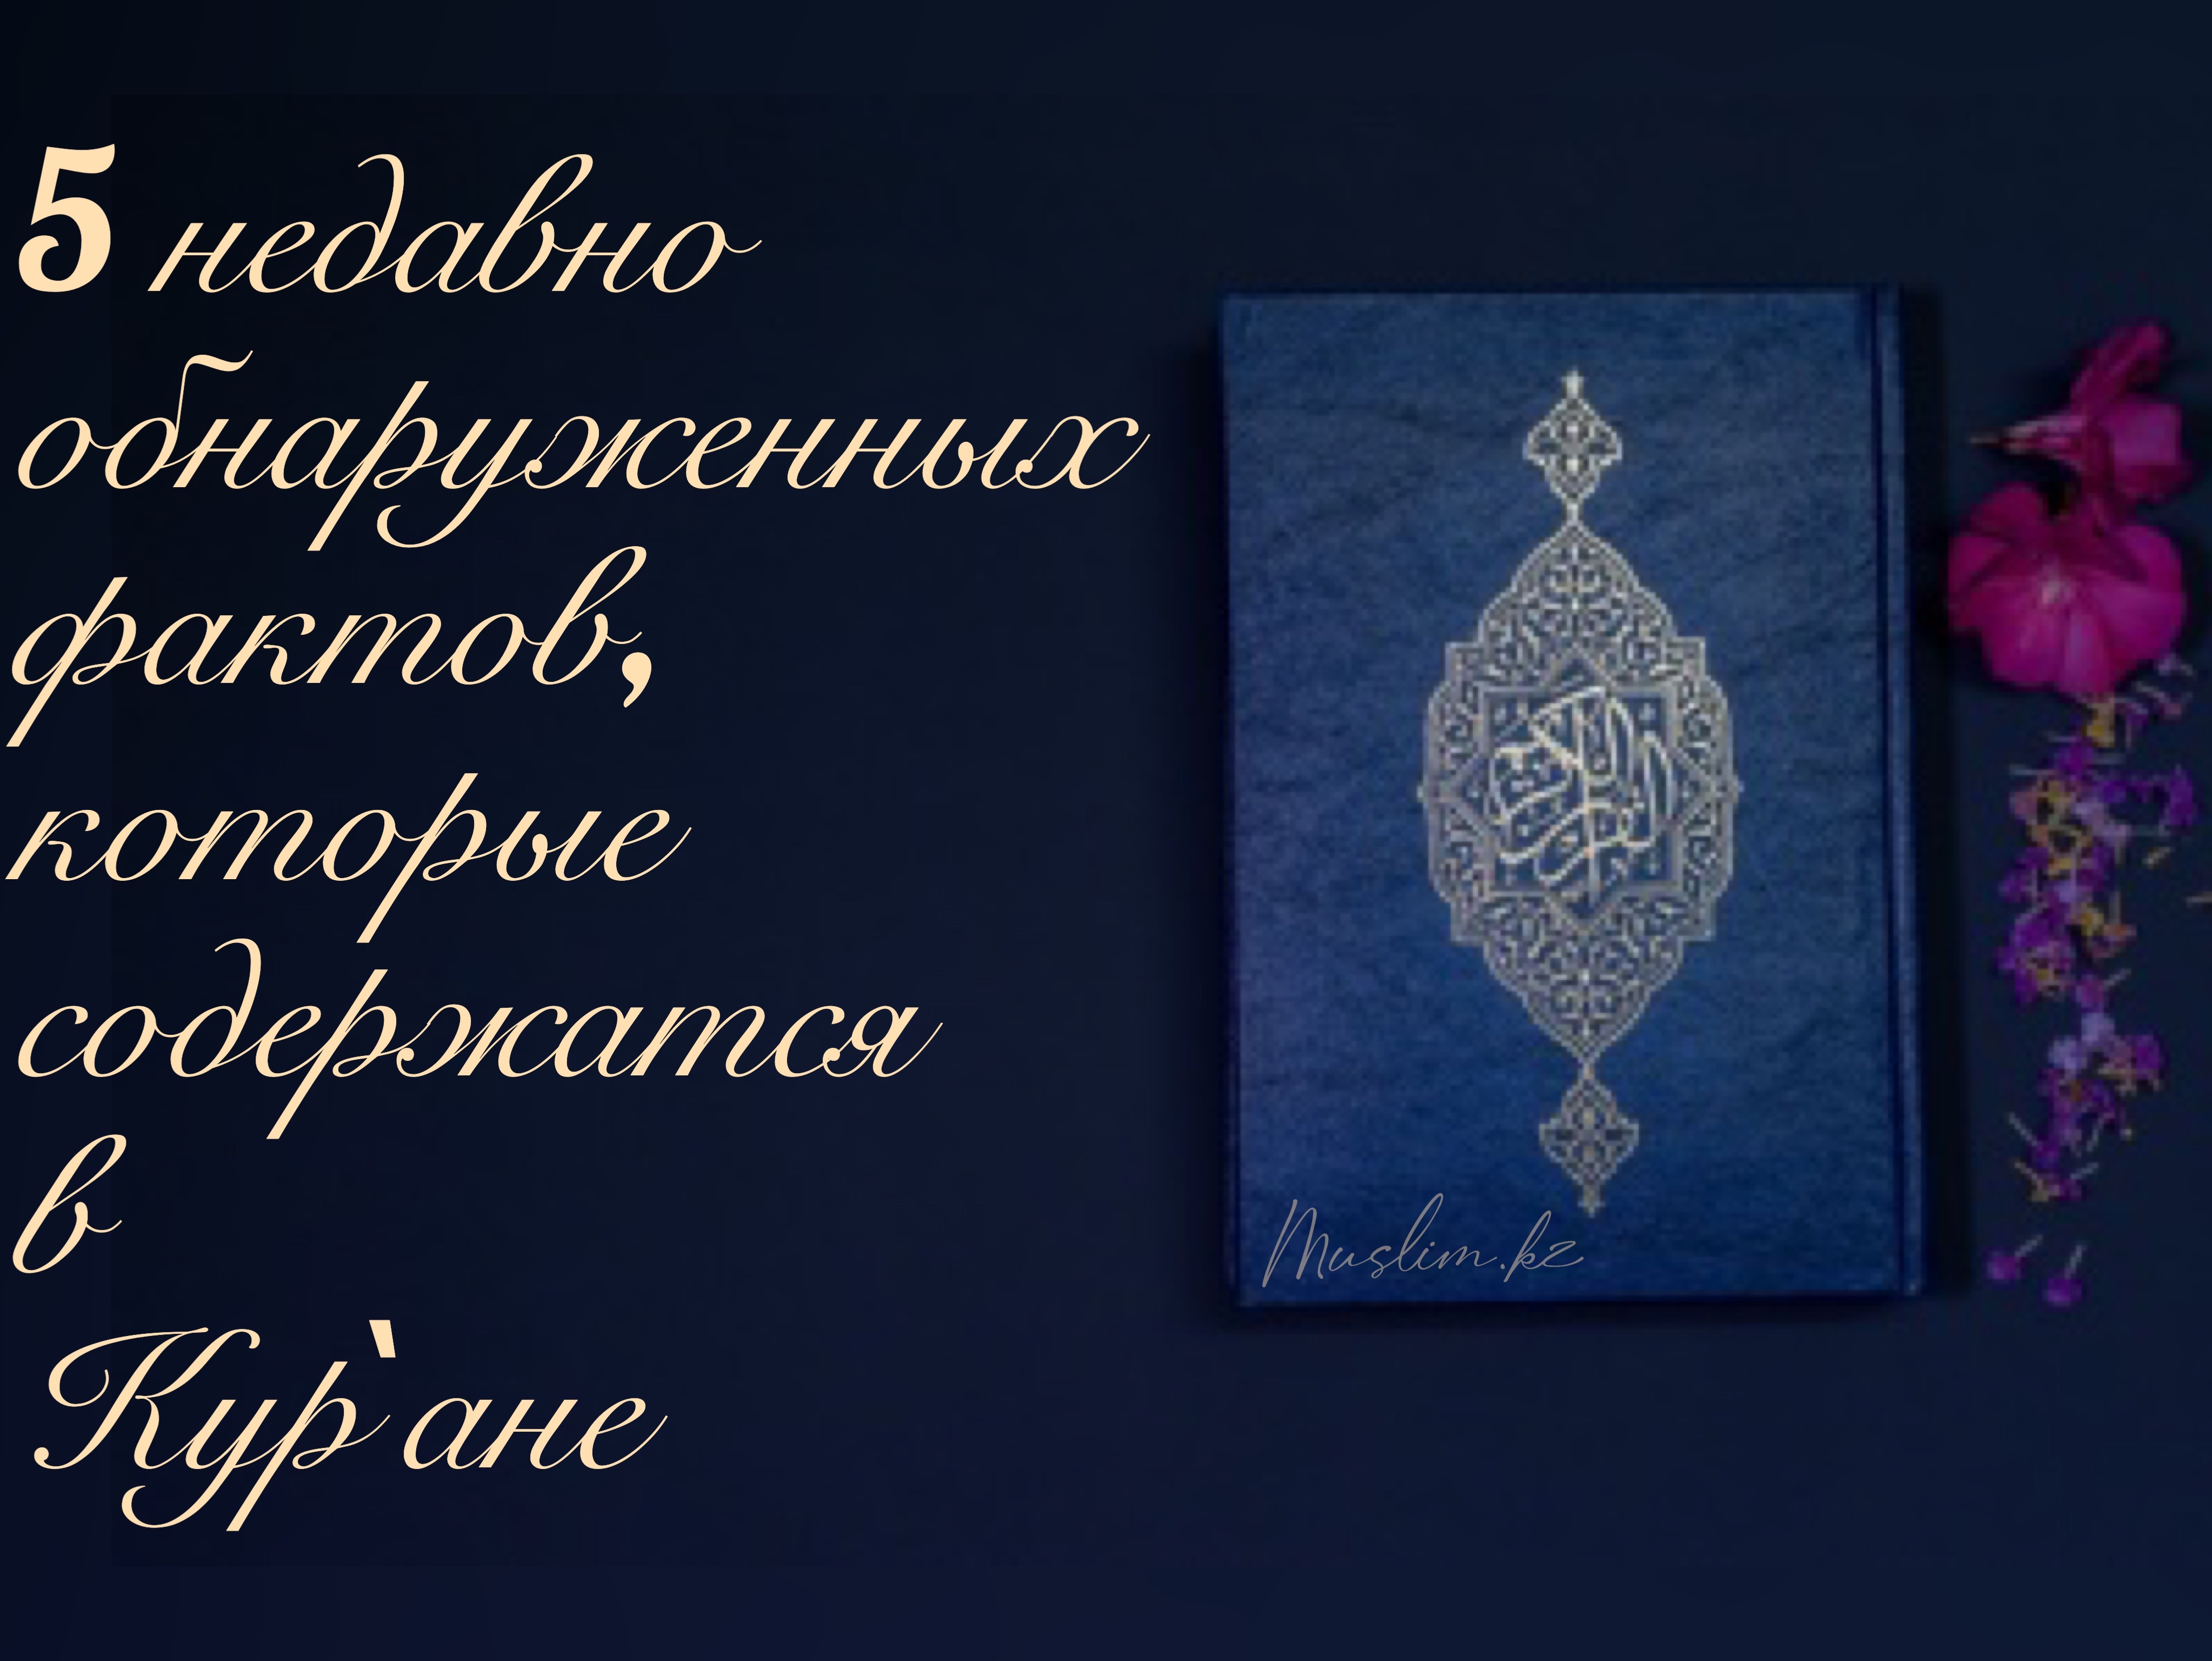 5 недавно
обнаруженных
фактов,
которые
содержатся
в
Кур`ане
القرآن الكريم
Muslim.kz